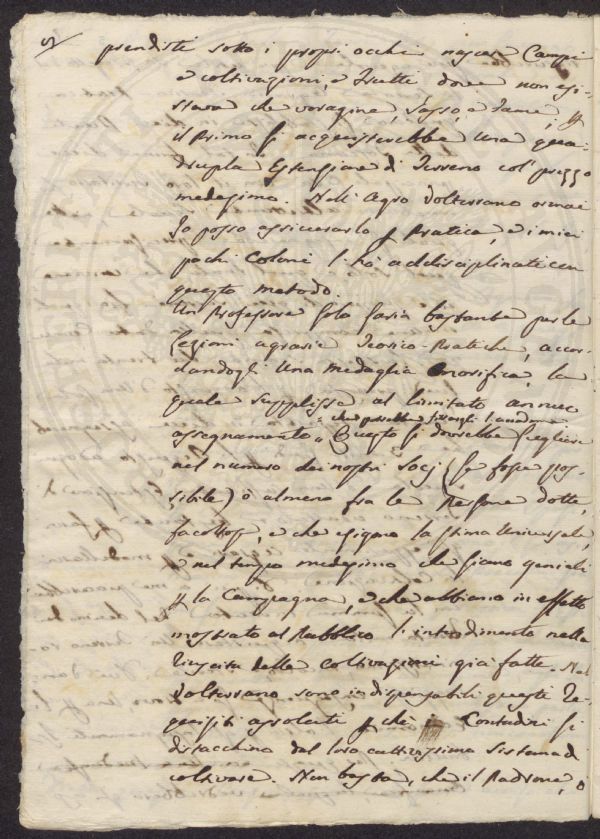 prendiste sotto i propri occhi nascer Campi
e coltivazioni, e Frutti, dove non esi-
steva che voragine, Sasso, e Fame, p
il Primo si acquisterebbe una qua-
drupla Estensione di Terreno col prezzo
medesimo. Nell' Agro Volterrano ormai
Io posso assicurarlo p Pratica, e i miei
pochi Coloni l' hò addisciplinati con
questo metodo.
Un Professore solo saria bastante per le
Lezioni agrarie Teorico-Pratiche, accor-
dandogli Una medaglia Onorifica, la
quale supplisse al limitato annuo
che potrebbe
assegnamento. Questo si dovrebbe scegliere
nel numero dei nostri Socj (se fosse pos-
sibile) ò almeno fra le Persone dotte,
facoltose, e che esigano la stima Universale,
e nel tempo medesimo che siano geniali
p la Campagna, e che abbiano in effetto
mostrato al Pubblico l' intendimento nella
riuscita delle coltivazioni già fatte. Nel
Volterrano sono indispensabili questi re-
quisiti assoluti p chè i Contadini si
distacchino dal loro cattivissimo sistema di
coltivare. Non basta, che il Padrone, o